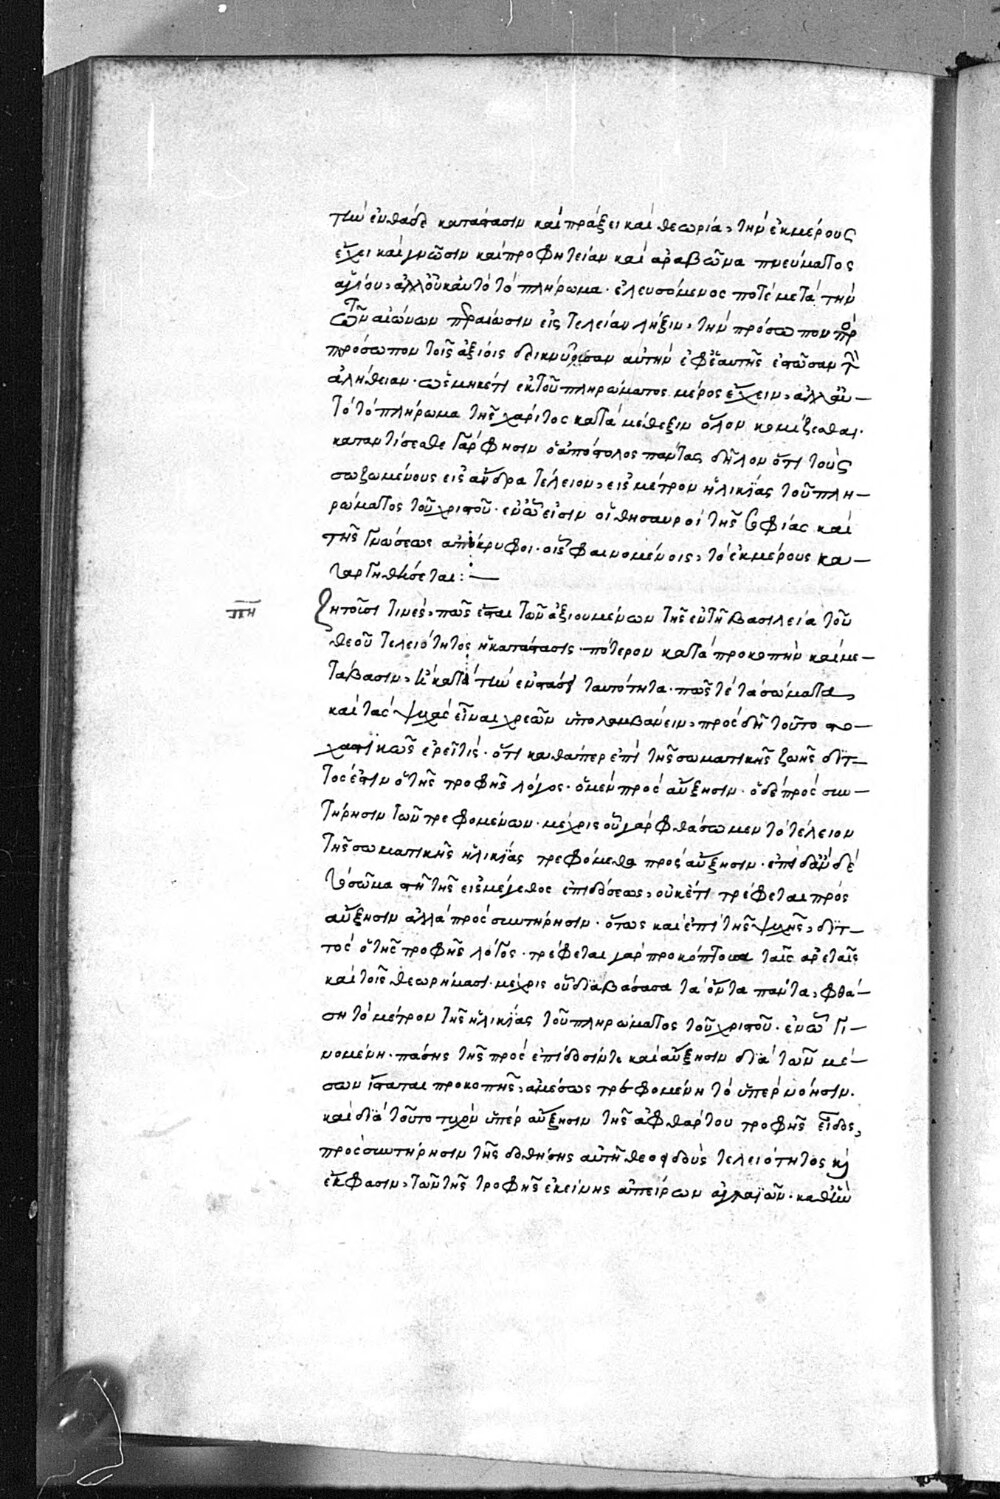 τὴν ἐνθάδε κατάστασιν καὶ πράξει καὶ θεωρία, τὴν ἐκμέρους
ἔχει καὶ γνῶσιν καὶ προφητείαν καὶ ἀραβῶνα πνεύματος
ἁγίου, ἀλλ' οὐκ αὐτὸ τὸ πλήρωμα· ἐλευσόμενος ποτὲ μετὰ τὴν
τῶν αἰώνων περαίωσιν εἰς τελείαν λῆξιν, τὴν πρόσωπον πρ
πρόσωπον τοῖς ἀξίοις δεικνύουσαν αὐτὴν ἐφ' ἑαυτῆς ἑστῶσαν τὴν
ἀλήθειαν· ὡς μηκέτι ἐκ τοῦ πληρώματος μέρος ἔχειν, ἀλλ' αὐ-
τὸ τὸ πλήρωμα τῆς χάριτος κατὰ μέθεξιν ὅλον κομίζεσθαι·
καταντίσεσθε γάρ φησιν ὁ ἀπόστολος πάντας δῆλον ὅτι τοὺς
σωζωμένους εἰς ἄνδρα τέλειον, εἰς μέτρον ἡλικίας τοῦ πλη-
ρώματος τοῦ χριστοῦ· ἐν ᾧ εἰσιν οἱ θησαυροὶ τῆς σοφίας καὶ
τῆς γνώσεως ἀπόκρυφοι· οἷς φαινομένοις, τὸ ἐκμέρους κα-
ταργηθήσεται:—
πη ζητοῦσι τινές, πῶς ἔσται τῶν ἀξιουμένων τῆς ἐν τῇ βασιλεία τοῦ
θεοῦ τελειότητος ἡ κατάστασις· πότερον κατὰ προκοπὴν καὶ με-
τάβασιν, ἢ κατὰ τὴν ἐν στάσει ταυτότητα· πῶς τὲ τὰ σώματα,
καὶ τὰς ψυχὰς εἶναι χρεῶν ὑπολαμβάνειν, πρὸς δὴ τοῦτο στο-
χαστικῶς ἐρεῖ τίς· ὅτι καθάπερ ἐπὶ τῆς σωματικῆς ζωῆς διτ-
τός ἐστιν ὁ τῆς τροφῆς λόγος· ὁ μὲν πρὸς αὔξησιν· ὁ δὲ πρὸς συν-
τήρησιν τῶν τρεφομένων· μέχρις οὗ γὰρ φθάσωμεν τὸ τέλειον
τῆς σωματικῆς ἡλικίας τρεφόμεθα πρὸς αὔξησιν· ἐπιδὰν δὲ
τὸ σῶμα στῆ τῆς εἰς μέγεθος ἐπιδόσεως, οὐκέτι τρέφεται πρὸς
αὔξησιν ἀλλὰ πρὸς συντήρησιν· οὕτως καὶ ἐπὶ τῆς ψυχῆς, διτ-
τὸς ὁ τῆς τροφῆς λόγος· τρέφεται γὰρ προκόπτουσα ταῖς ἀρεταῖς
καὶ τοῖς θεωρήμασι· μέχρις οὗ διαβάσασα τὰ ὄντα πάντα, φθά-
ση τὸ μέτρον τῆς ἡλικίας τοῦ πληρώματος τοῦ χριστοῦ· ἐν ᾧ γι-
νομένη· πάσης τῆς πρὸς ἐπίδοσίν τε καὶ αὔξησιν διὰ τῶν μέ-
σων ἵσταται προκοπῆς, ἀμέσως τρεφομένη τὸ ὑπὲρ νόησιν·
καὶ διὰ τοῦτο τυχὸν ὑπὲρ αὔξησιν τῆς ἀφθάρτου τροφῆς εἶδος,
πρὸς συντήρησιν τῆς δοθήσης αὐτῆ θεοειδοῦς τελειότητος καὶ
ἔκφασιν, τῶν τῆς τροφῆς ἐκείνης ἀπείρων ἀγλαϊῶν· καθ' ἣν